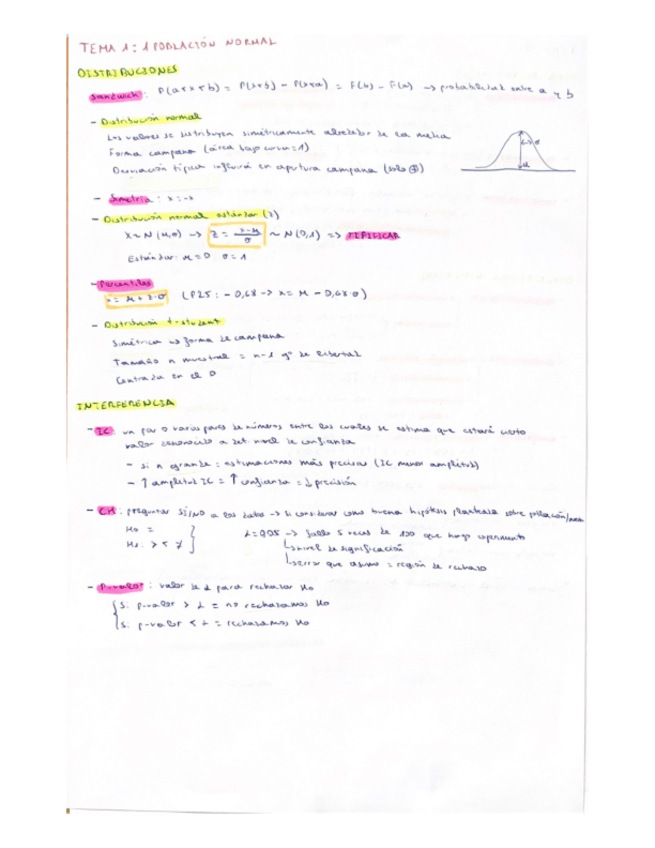 TEMA 1: 1 POBLACIÓN NORMAL
DISTRIBUCIONES
Sandwich: P(a<x<b) = P(x<b) - P(x<a) = F(b) - F(a) → probabilidad entre a y b
- Distribución normal
Los valores se distribuyen simétricamente alrededor de la media
Forma campana (área bajo curva=1)
Desviación típica influirá en apertura campana (solo ⊕)
σ
μ
- Simetría: x=-x
- Distribución normal estándar (z)
x~N(μ,σ) → z = x-μ/σ ~ N(0,1) => TIPIFICAR
Estándar: μ=0 σ=1
- Percentiles
x = μ+z·σ (P25: -0,68 -> x= μ - 0,68·σ)
- Distribución t-student
Simétrica → forma de campana
Tamaño n muestral = n-1 gº de libertad
Centrada en el 0
INTERFERENCIA
- IC: un par o varios pares de números entre los cuales se estima que estará cierto
valor desconocido a det. nivel de confianza
- si n grande = estimaciones más precisas (IC menor amplitud)
- ↑ amplitud IC = ↑ confianza = ↓ precisión
- CH: preguntar SÍ/NO a los datos → si considerar como buena hipótesis planteada sobre población
H0 =
H1: > < ≠
α=0,05 -> fallo 5 veces de 100 que hago experimento
nivel de significación
error que asumo = región de rechazo
- P-valor: valor de α para rechazar H0
Si p-valor > α = no rechazamos H0
Si p-valor < α = rechazamos H0